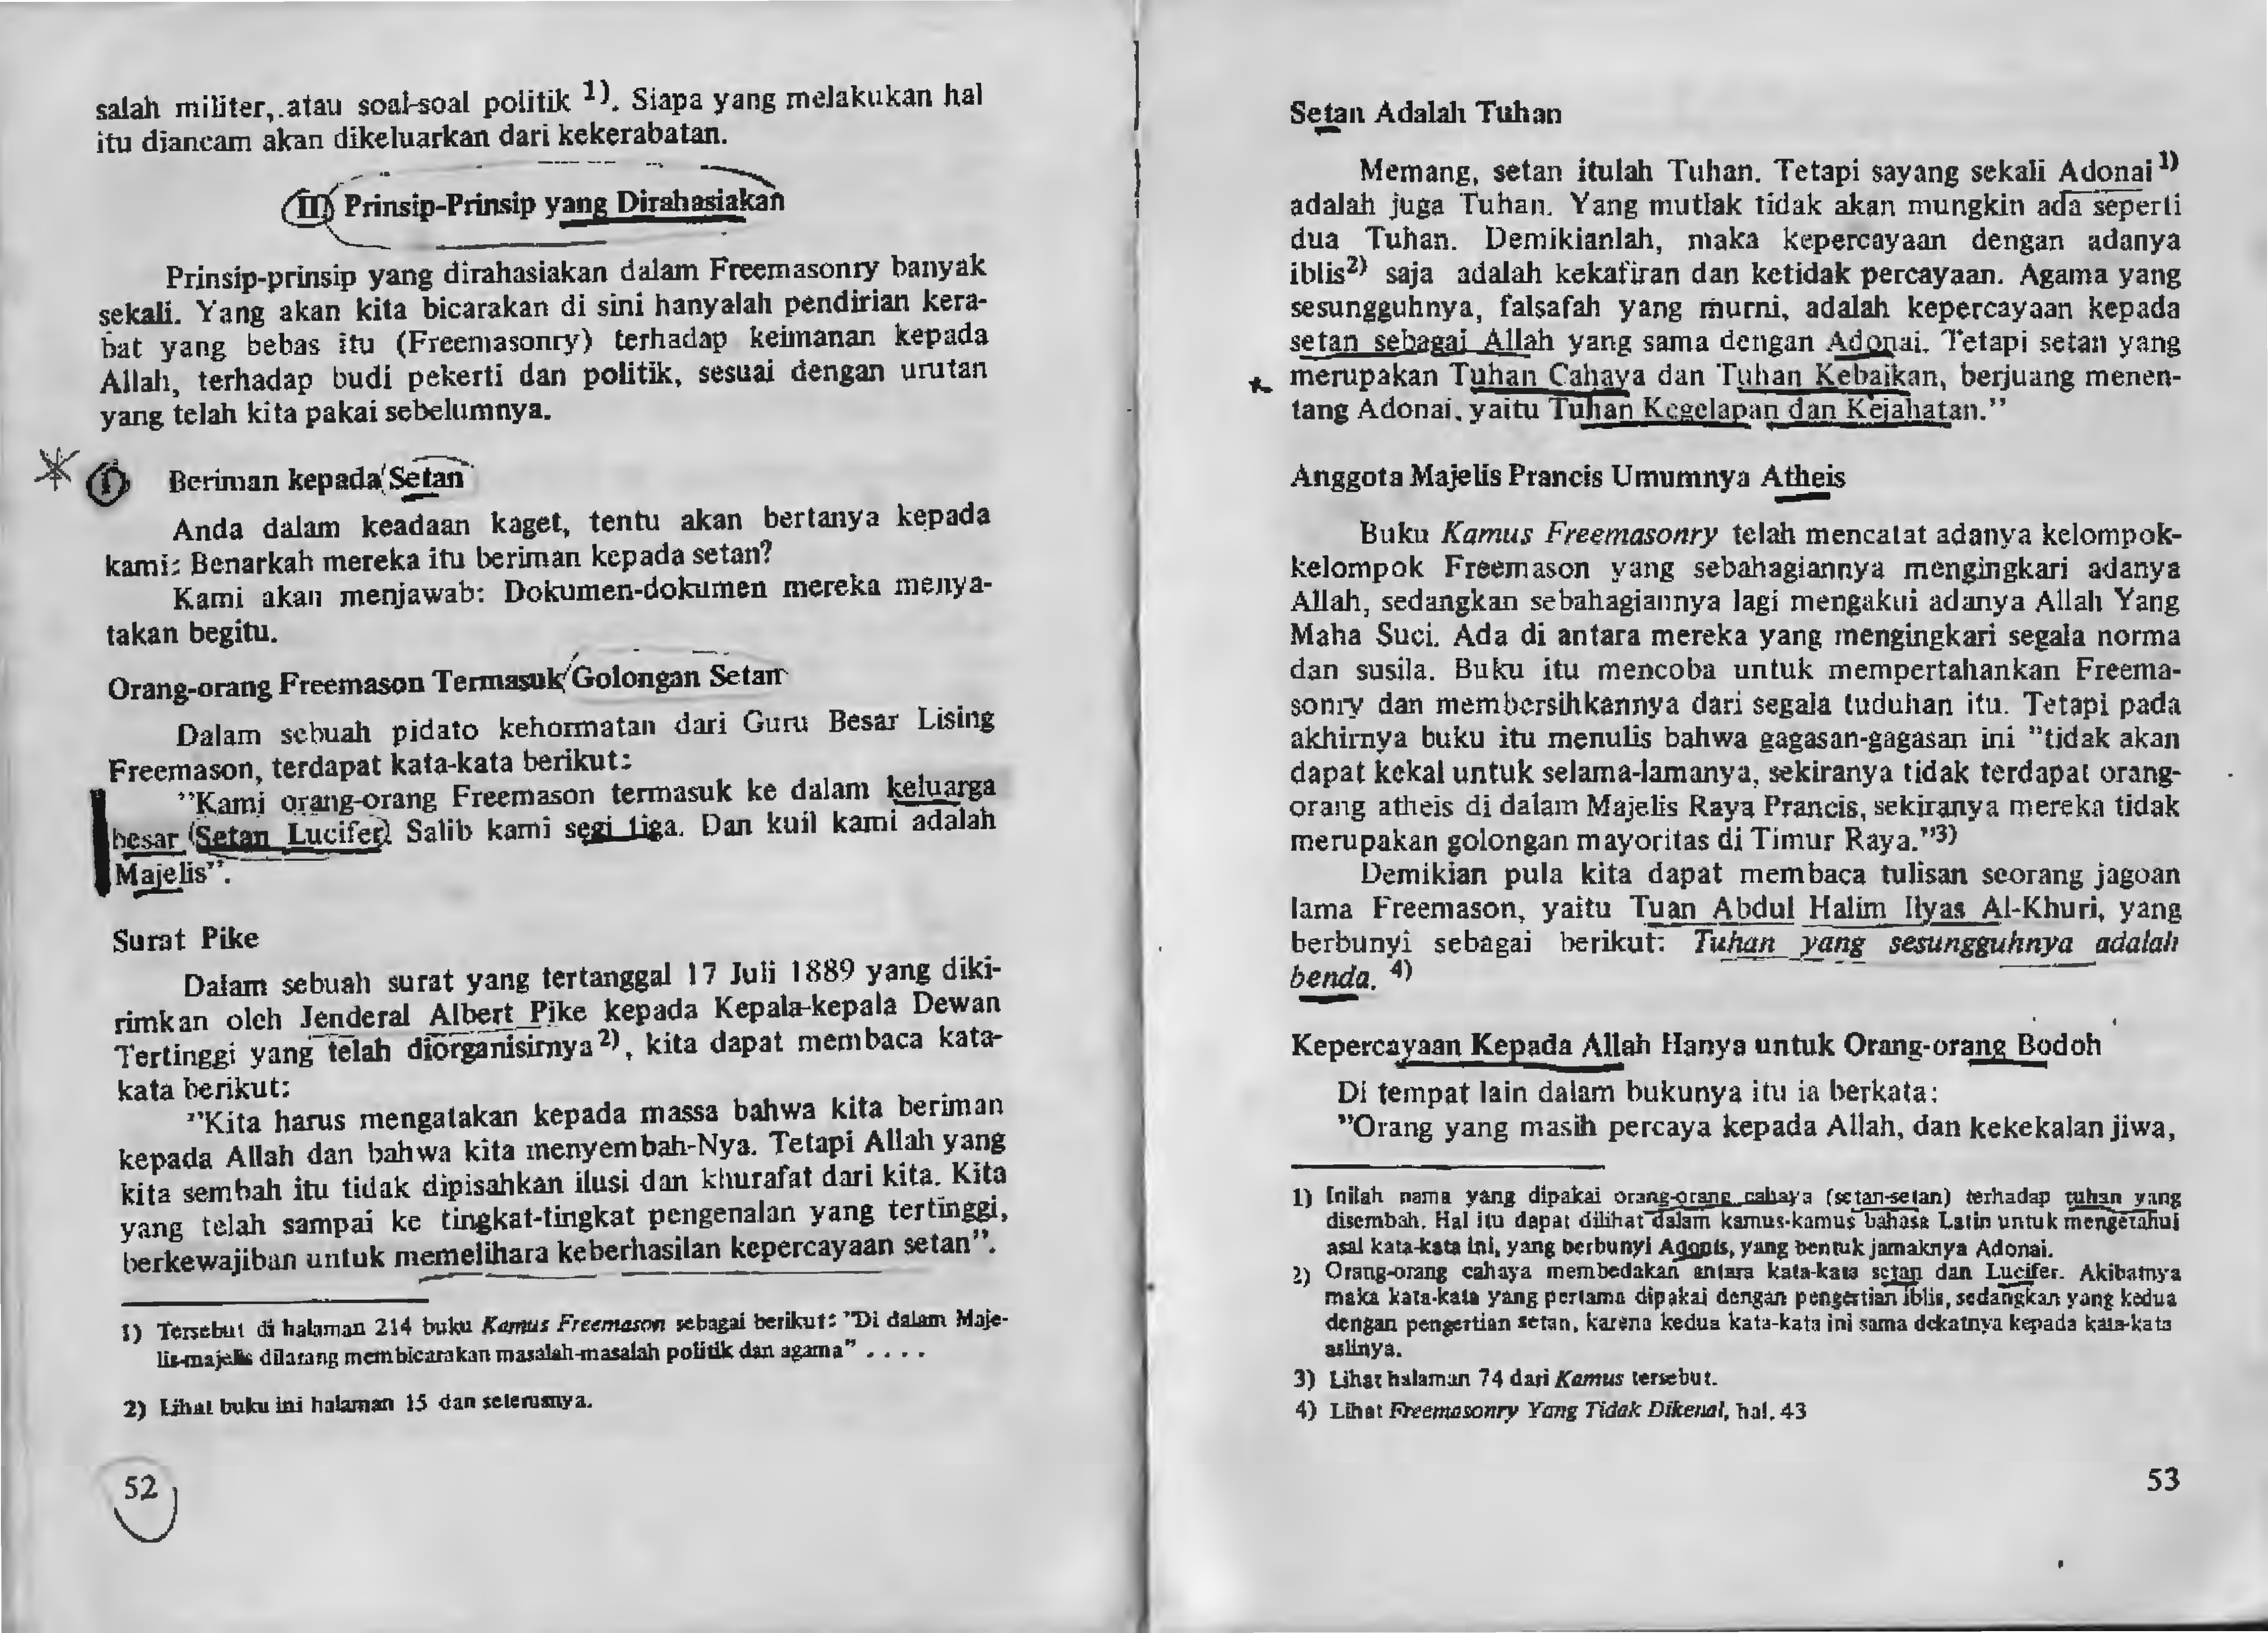 salah militer, atau soal-soal politik 1). Siapa yang melakukan hal
itu diancam akan dikeluarkan dari kekerabatan.
(II) Prinsip-Prinsip yang Dirahasiakan
Prinsip-prinsip yang dirahasiakan dalam Freemasonry banyak
sekali. Yang akan kita bicarakan di sini hanyalah pendirian kera-
bat yang bebas itu (Freemasonry) terhadap keimanan kepada
Allah, terhadap budi pekerti dan politik, sesuai dengan urutan
yang telah kita pakai sebelumnya.
I Beriman kepada Setan
Anda dalam keadaan kaget, tentu akan bertanya kepada
kami: Benarkah mereka itu beriman kepada setan?
Kami akan menjawab: Dokumen-dokumen mereka menya-
takan begitu.
Orang-orang Freemason Termasuk Golongan Setan
Dalam sebuah pidato kehormatan dari Guru Besar Lising
Freemason, terdapat kata-kata berikut:
"Kami orang-orang Freemason termasuk ke dalam keluarga
besar Setan Lucifer. Salib kami segi tiga. Dan kuil kami adalah
Majelis".
Surat Pike
Dalam sebuah surat yang tertanggal 17 Juli 1889 yang diki-
rimkan oleh Jenderal Albert Pike kepada Kepala-kepala Dewan
Tertinggi yang telah diorganisirnya 2), kita dapat membaca kata-
kata berikut:
"Kita harus mengatakan kepada massa bahwa kita beriman
kepada Allah dan bahwa kita menyembah-Nya. Tetapi Allah yang
kita sembah itu tidak dipisahkan ilusi dan khurafat dari kita. Kita
yang telah sampai ke tingkat-tingkat pengenalan yang tertinggi,
berkewajiban untuk memelihara keberhasilan kepercayaan setan".
1) Tersebut di halaman 214 buku Kamus Freemason sebagai berikut: "Di dalam Maje-
lis-majelis dilarang membicarakan masalah-masalah politik dan agama" . . . .
2) Lihat buku ini halaman 15 dan seterusnya.
52
Setan Adalah Tuhan
Memang, setan itulah Tuhan. Tetapi sayang sekali Adonai 1)
adalah juga Tuhan. Yang mutlak tidak akan mungkin ada seperti
dua Tuhan. Demikianlah, maka kepercayaan dengan adanya
iblis2) saja adalah kekafiran dan ketidak percayaan. Agama yang
sesungguhnya, falsafah yang murni, adalah kepercayaan kepada
setan sebagai Allah yang sama dengan Adonai. Tetapi setan yang
merupakan Tuhan Cahaya dan Tuhan Kebaikan, berjuang menen-
tang Adonai, yaitu Tuhan Kegelapan dan Kejahatan."
Anggota Majelis Prancis Umumnya Atheis
Buku Kamus Freemasonry telah mencatat adanya kelompok-
kelompok Freemason yang sebahagiannya mengingkari adanya
Allah, sedangkan sebahagiannya lagi mengakui adanya Allah Yang
Maha Suci. Ada di antara mereka yang mengingkari segala norma
dan susila. Buku itu mencoba untuk mempertahankan Freema-
sonry dan membersihkannya dari segala tuduhan itu. Tetapi pada
akhirnya buku itu menulis bahwa gagasan-gagasan ini "tidak akan
dapat kekal untuk selama-lamanya, sekiranya tidak terdapat orang-
orang atheis di dalam Majelis Raya Prancis, sekiranya mereka tidak
merupakan golongan mayoritas di Timur Raya."3)
Demikian pula kita dapat membaca tulisan seorang jagoan
lama Freemason, yaitu Tuan Abdul Halim Ilyas Al-Khuri, yang
berbunyi sebagai berikut: Tuhan yang sesungguhnya adalah
benda. 4)
Kepercayaan Kepada Allah Hanya untuk Orang-orang Bodoh
Di tempat lain dalam bukunya itu ia berkata:
"Orang yang masih percaya kepada Allah, dan kekekalan jiwa,
1) Inilah nama yang dipakai orang-orang cahaya (setan-setan) terhadap tuhan yang
disembah. Hal itu dapat dilihat dalam kamus-kamus bahasa Latin untuk mengetahui
asal kata-kata ini, yang berbunyi Adonis, yang bentuk jamaknya Adonai.
2) Orang-orang cahaya membedakan antara kata-kata setan dan Lucifer. Akibatnya
maka kata-kata yang pertama dipakai dengan pengertian iblis, sedangkan yang kedua
dengan pengertian setan, karena kedua kata-kata ini sama dekatnya kepada kata-kata
aslinya.
3) Lihat halaman 74 dari Kamus tersebut.
4) Lihat Freemasonry Yang Tidak Dikenal, hal. 43
53